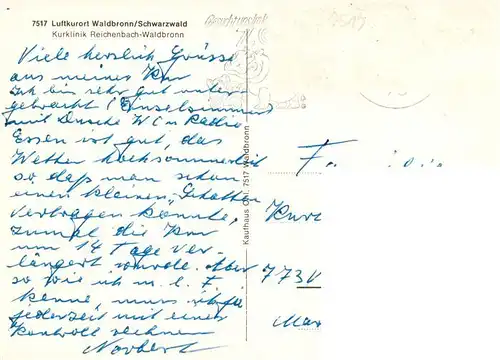 7517 Luftkurort Waldbronn/Schwarzwald
Kurklinik Reichenbach-Waldbronn
7517
Viele herzlich Grüsse
aus meiner Kur
Ich bin sehr gut unter
gebracht (Einzelzimmer
mit Dusche WC u Radio
Essen ist gut, das
Wetter hochsommerlich
so daß man schon
einen kleinen "Schatten
vertragen konnte,
zumal die Kur
um 14 Tage ver-
längert wurde. Aber
so wie ich m. l. F.
kenne, muss ich
jederzeit mit einer
Kontroll rechnen
Norbert
Kaufhaus Ohl, 7517 Waldbronn
F
Kurt
773
Max